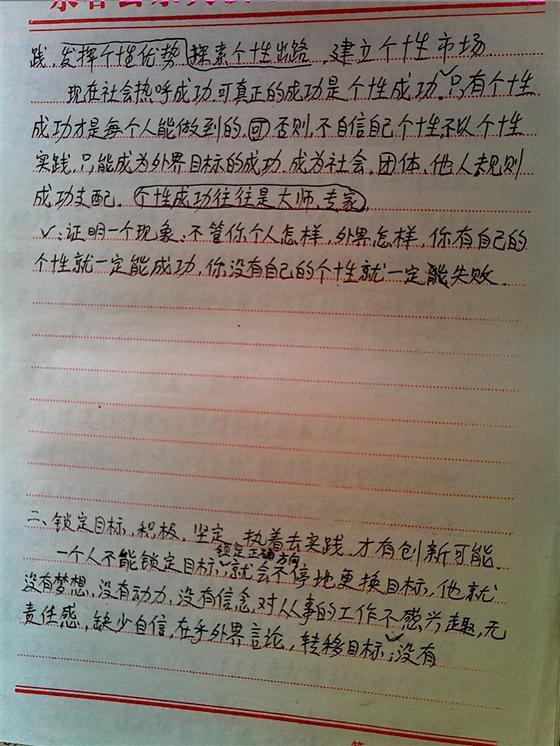 践,发挥个性优势 探索个性出路,建立个性市场.
现在社会热呼成功,可真正的成功是个性成功,只有个性
成功才是每个人能做到的.回否则,不自信自己个性,不以个性
实践,只能成为外界目标的成功,成为社会,团体,他人规则
成功支配.个性成功往往是大师,专家,
√:证明一个现象,不管你个人怎样,外界怎样,你有自己的
个性就一定能成功,你没有自己的个性就一定能失败.
二、锁定目标,积极,坚定,执着去实践,才有创新可能.
锁定正确方向
一个人不能锁定目标,就会不停地更换目标,他就
没有梦想,没有动力,没有信念,对从事的工作不感兴趣,无
责任感,缺少自信,在乎外界言论,转移目标;没有